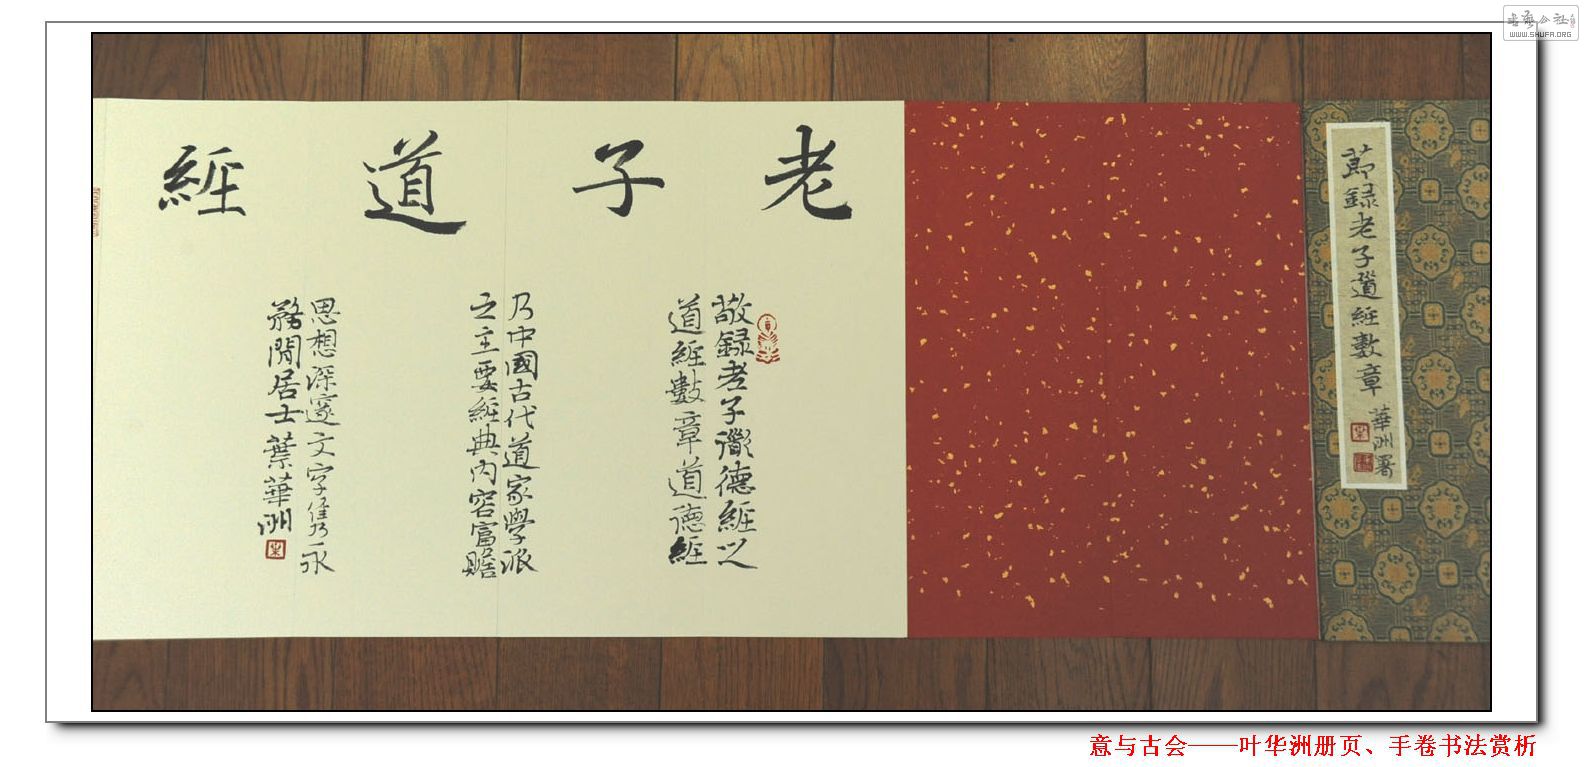 節録老子道經數章
華洲署
老子道經
敬録老子道德經之
道經數章道德經
乃中國古代道家學派
之主要經典内容富贍
思想深邃文字隽乃永
務閒居士葉華洲
意与古会——叶华洲册页、手卷书法赏析
WWW.SHUFA.ORG